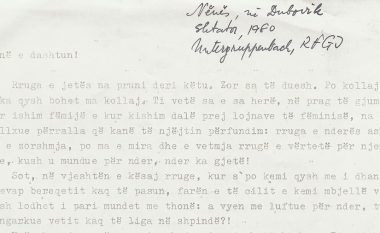 Nënës, në Dubovik
Shtator, 1980
Untergruppenbach, RFGJ
në e dashtun!
Rruga e jetës ma pruni deri këtu. Zor sa të duesh. Po kollaj
ka qysh bohet ma kollaj. Ti vetë sa e sa herë, në prag të gjum
r ishim fëmijë e kur kishim dalë prej lojnave të fëminisë, na
llxue përralla që kanë të njëjtin përfundim: rruga e nderës as
e zorshmja, po ma e mira dhe e vetmja rrugë e vërtetë për nje
, kush u mundue për nder, nder ka gjetë!
Sot, në vjeshtën e kësaj rruge, kur s'po kemi qysh me i dhan
evap bereqetit kaq të pasun, farën e të cilit e kemi mbjellë v
sh lodhet i pari mundet me thonë: a vyen me luftue për nder, t
ngarkue vetit kaq të liga në shpindë?!